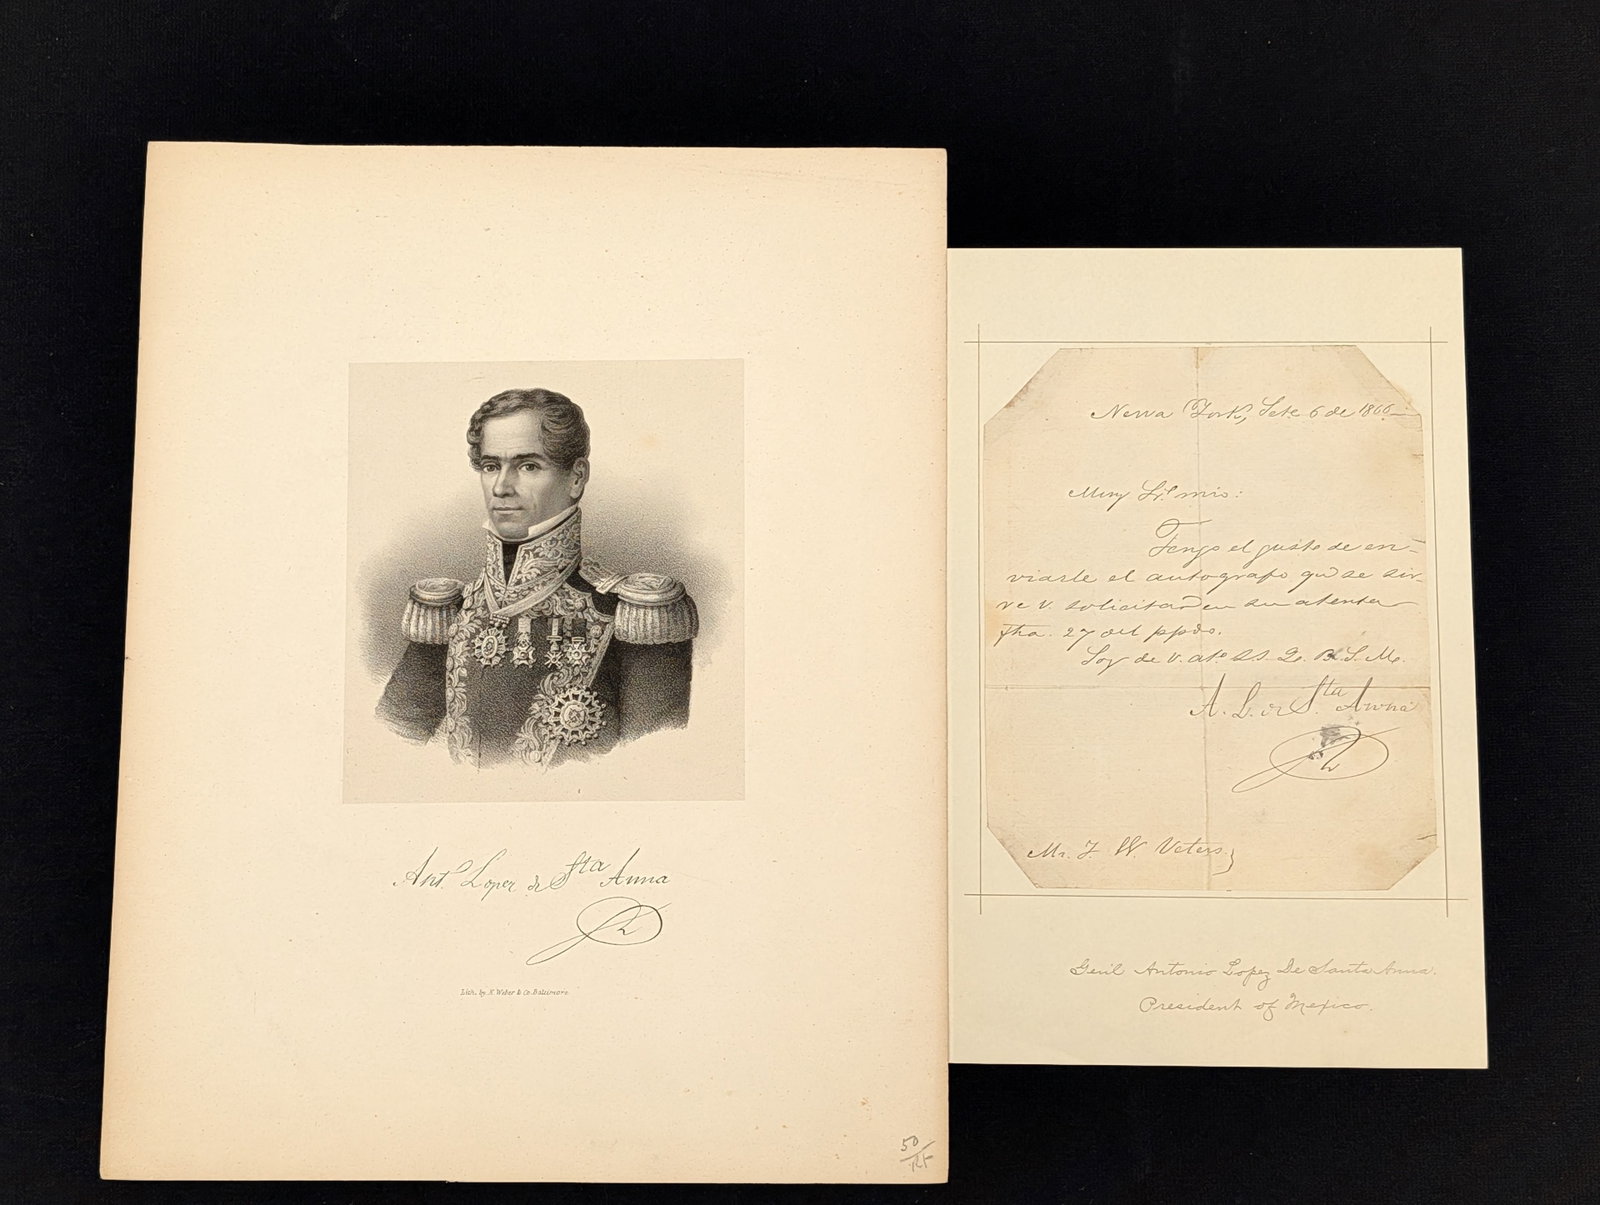 Ant. Lopez de Sta Anna
Lith. by A. Weber & Co. Baltimore
50
Newa York, Sete. 6 de 1866
Muy Sr. mio:
Tengo el gusto de en-
viarle el autografo qe. se sir-
ve V. solicitar en su atenta
fha. 27 del ppdo.
Soy de V. ato. S. S. Q. B. S. M.
A. L. de Sta Anna
Mr. F. W. Veters.
Genl Antonio Lopez De Santa Anna.
President of Mexico.